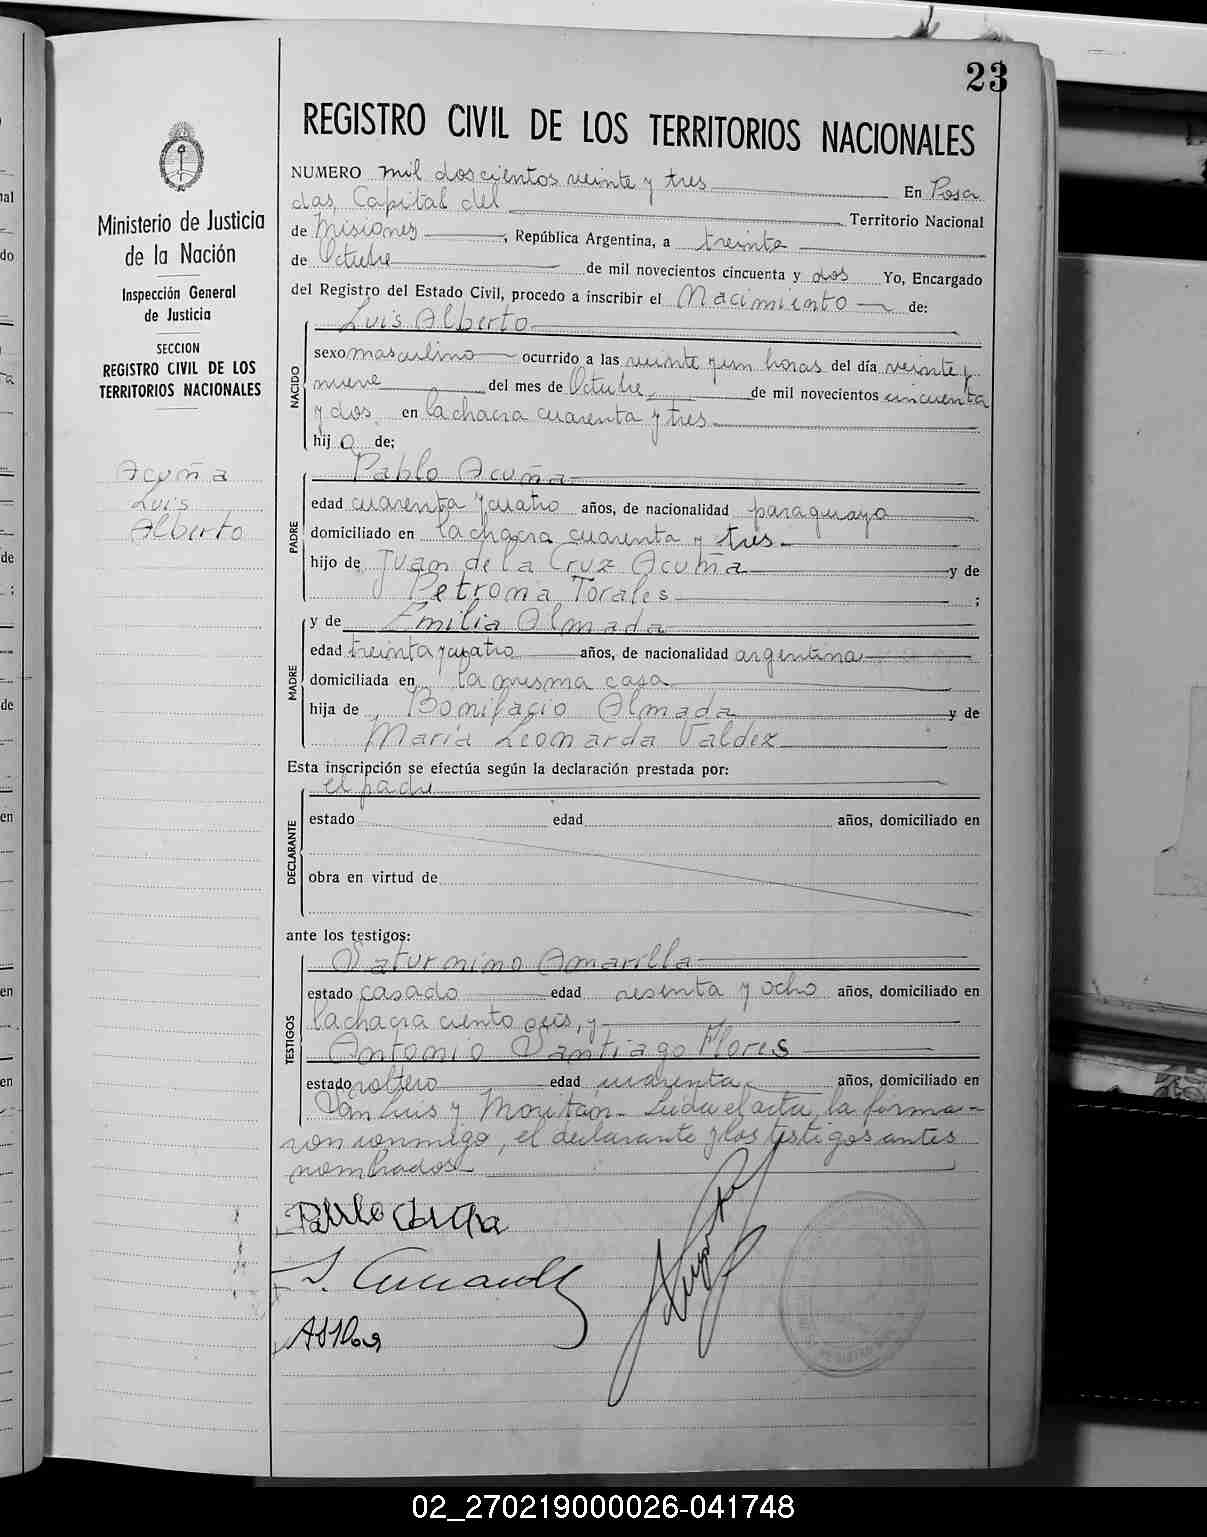 23
REGISTRO CIVIL DE LOS TERRITORIOS NACIONALES
NUMERO mil doscientos veinte y tres En Posa
das, Capital del Territorio Nacional
de Misiones, República Argentina, a treinta
de Octubre de mil novecientos cincuenta y dos Yo, Encargado
del Registro del Estado Civil, procedo a inscribir el Nacimiento de:
Luis Alberto
sexo masculino ocurrido a las veinte y un horas del día veinte y
nueve del mes de Octubre, de mil novecientos cincuenta
y dos en la chacra cuarenta y tres
hijo de;
NACIDO
Pablo Acuña
edad cuarenta y cuatro años, de nacionalidad paraguayo
domiciliado en la chacra cuarenta y tres
hijo de Juan de la Cruz Acuña y de
Petrona Torales ;
PADRE
y de Emilia Almada
edad treinta y cuatro años, de nacionalidad argentina
domiciliada en la misma casa
hija de Bonifacio Almada y de
María Leonarda Valdez
MADRE
Esta inscripción se efectúa según la declaración prestada por:
el padre
estado edad años, domiciliado en
obra en virtud de
DECLARANTE
ante los testigos:
Saturnino Amarilla
estado casado edad sesenta y ocho años, domiciliado en
la chacra ciento seis, y
Antonio Santiago Flores
estado soltero edad cuarenta años, domiciliado en
San Luis y Moritán - Leida el acta, la firma-
ron conmigo, el declarante y los testigos antes
nombrados
TESTIGOS
Pablo Acuña
Ministerio de Justicia
de la Nación
Inspección General
de Justicia
SECCION
REGISTRO CIVIL DE LOS
TERRITORIOS NACIONALES
Acuña
Luis
Alberto
nal
do
de
de
en
en
en
02_270219000026-041748